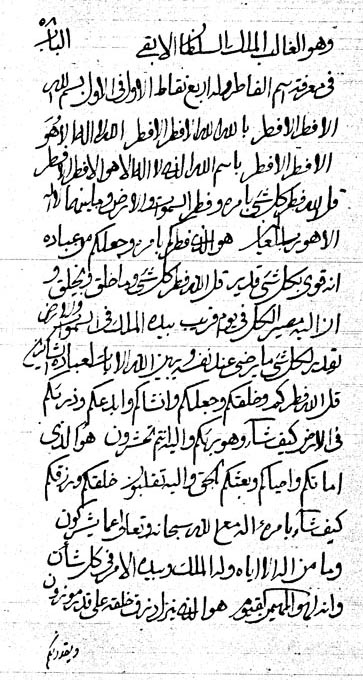 وهو الغالب الملك السلطان الابقى الباب ٥٨
فى معرفة اسم الفاطر وله اربع نقاط الاول فى الاول بسم الله
الافطر الافطر بالله الله الافطر الافطر الله لا اله الا هو
الافطر الافطر باسم الله الذى لا اله الا هو الافطر الافطر
قل الله فطر كل شئ بامره وفطر السموات والارض وما بينهما لا اله
الا هو رب العالمين هو الذى فطركم بامره وجعلكم من عباده
انه قوى بكل شئ قدير قل الله فطر كل شئ وما خلق ويخلق و
ان اليه مصير الكل فى يوم قريب بيده الملك فى السموات والارض
يقدر لكل شئ ما يرضى عند نفسه ويبين الله الايات لعباده
قل الله فطركم وخلقكم وجعلكم وانشاكم وابدعكم وذريكم
فى الارض كيف شاء وهو ربكم واليه انتم تحشرون هو الذى
اماتكم واحياكم ويعثكم بالحق واليه تقلبون خلقكم ورزقكم
كيف شاء بامره ءاله مع الله سبحانه وتعالى عما يشركون
وما من اله الا اياه وله الملك وبيده الامر فى كل شان
وانه لهو المهيمن القيوم هو الذى ينزل رزق خلقه على قدر موزون
ويقدركم